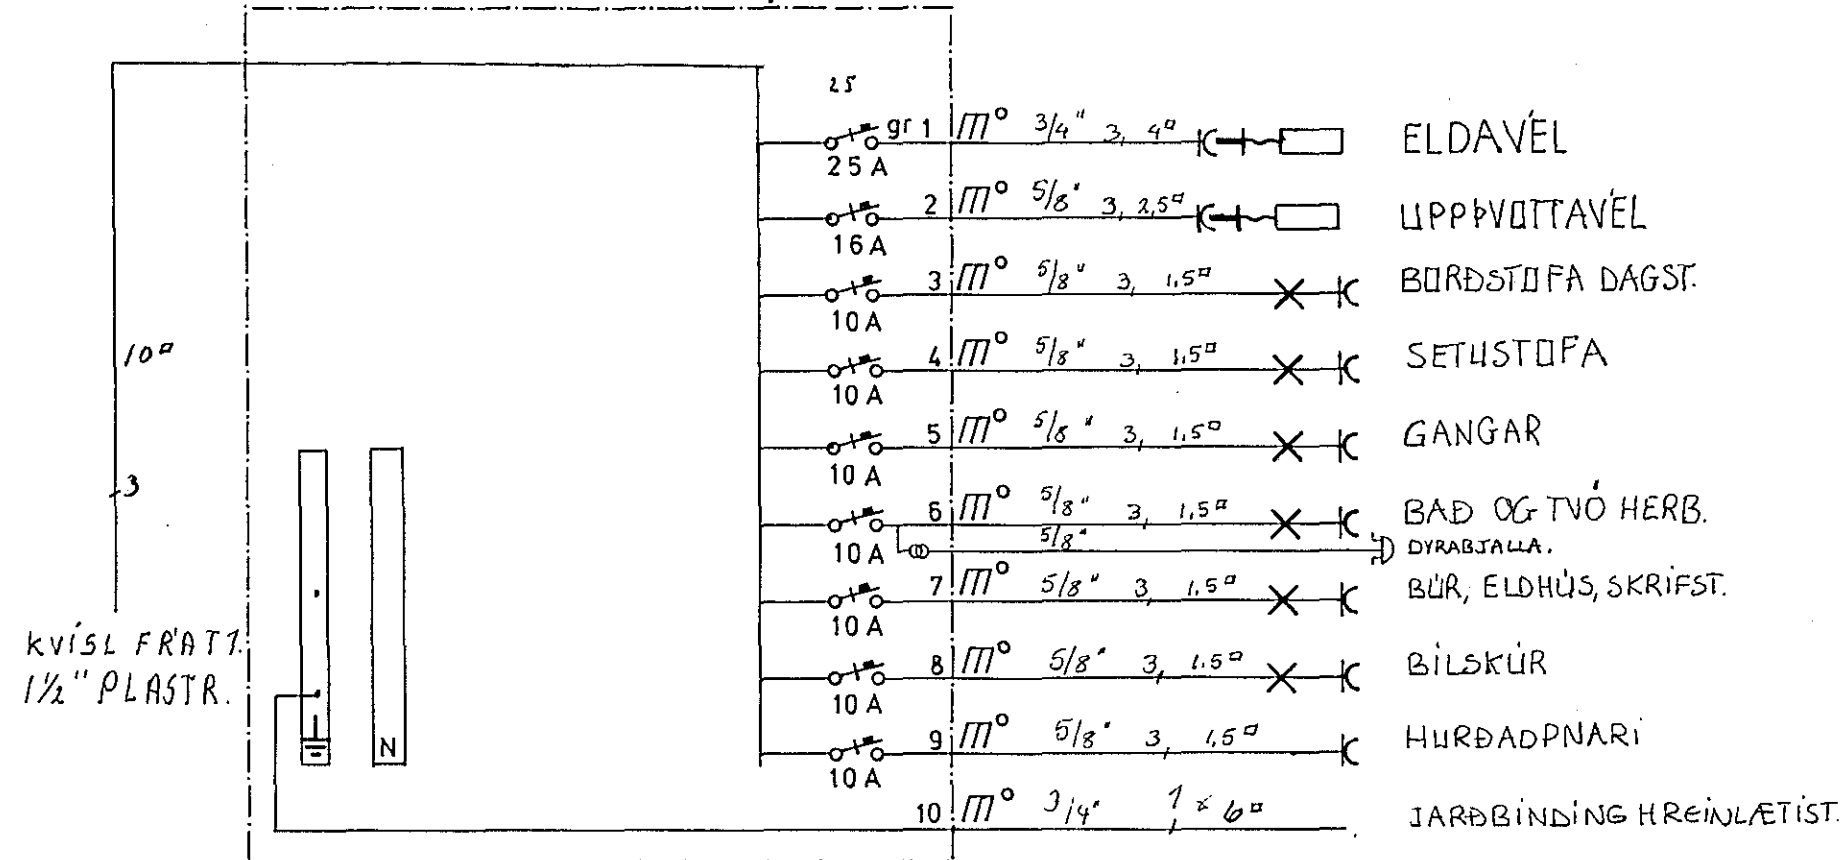 25
gr 1 m° 3/4" 3, 4¤ ELDAVÉL
25 A
2 m° 5/8" 3, 2,5¤ UPPÞVOTTAVÉL
16 A
3 m° 5/8" 3, 1,5¤ BORÐSTOFA DAGST.
10 A
4 m° 5/8" 3, 1,5¤ SETUSTOFA
10 A
10¤
5 m° 5/8" 3, 1,5¤ GANGAR
10 A
3
6 m° 5/8" 3, 1,5¤ BAÐ OG TVÓ HERB.
10 A 5/8" DYRABJALLA.
7 m° 5/8" 3, 1,5¤ BÚR, ELDHÚS, SKRIFST.
10 A
KVÍSL FRÁ T1.
1½" PLASTR.
8 m° 5/8" 3, 1.5¤ BÍLSKÚR
10 A
N
9 m° 5/8" 3, 1,5¤ HURÐAOPNARI
10 A
10 m° 3/4" 1 x 6¤ JARÐBINDING HREINLÆTIST.